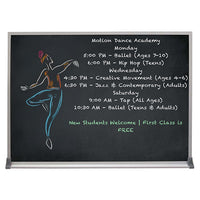 Motion Dance Academy
Monday
5:00 PM - Ballet (Ages 7-10)
6:00 PM - Hip Hop (Teens)
Wednesday
4:30 PM - Creative Movement (Ages 4-6)
6:30 PM - Jazz & Contemporary (Adults)
Saturday
9:00 AM - Tap (All Ages)
10:30 AM - Ballet (Teens & Adults)
New Students Welcome | First Class is
FREE